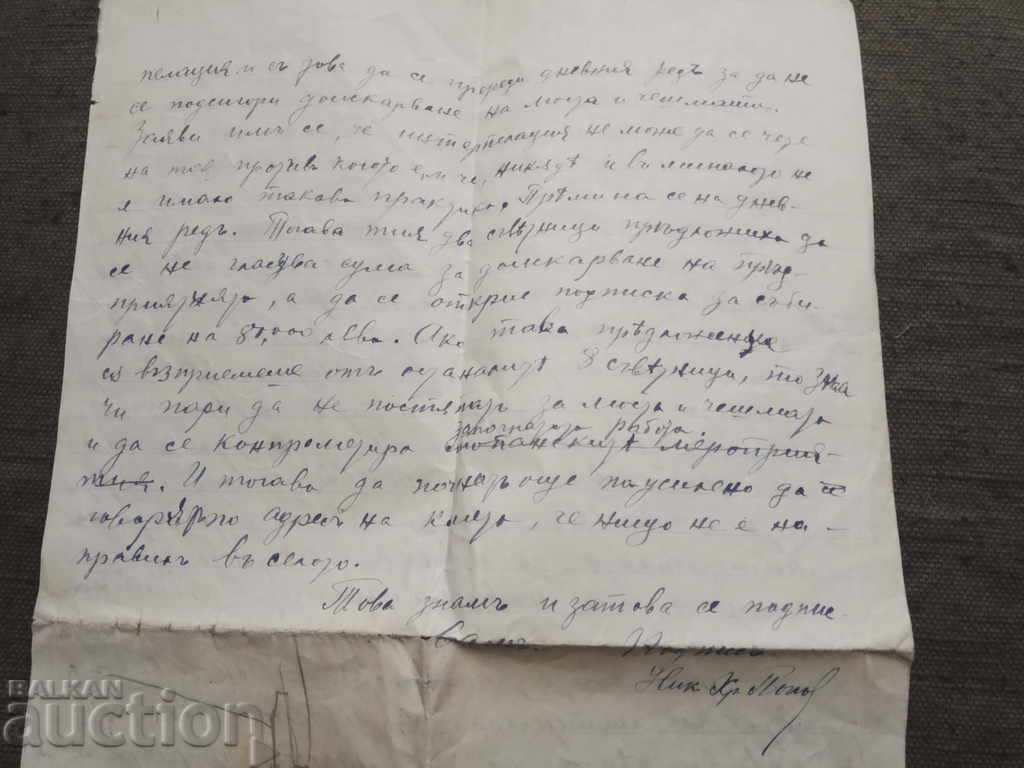 пелация и съ това да се прореди дневния редъ за да не
се подсигори доискарване на моста и чешмата.
Заяви имъ се, че интерпелация не може да се чете
на тоз противъ когото е, и че, никждѣ и въ миналото не
я имало такава практика. Прѣмина се на днев-
ния редъ. Тогава тия два съвѣтници прѣдложиха да
се не гласува сума за доискарване на прѣд-
приятията, а да се открие подписка за съби-
ране на 80,000 лева. Ако това прѣдложение
се възприемеше отъ останалитѣ 8 съвѣтници, то знаа
чи пари да не постѫпятъ за моста и чешмата
започнатата работа
и да се компрометира стопанскитѣ мероприя-
тия. И тогава да почнатъ още по усилено да
говорятъ по адресъ на кмета, че нищо не е на-
правилъ въ селото.
Това знамъ и затова се подпис-
вамъ.
Ник Хр. Попов
BALKAN
auction